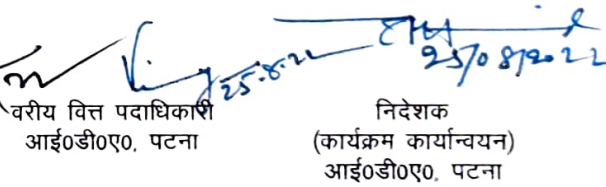 25.8.22
25/08/2022
वरीय वित्त पदाधिकारी
आई०डी०ए०, पटना
निदेशक
(कार्यक्रम कार्यान्वयन)
आई०डी०ए०, पटना